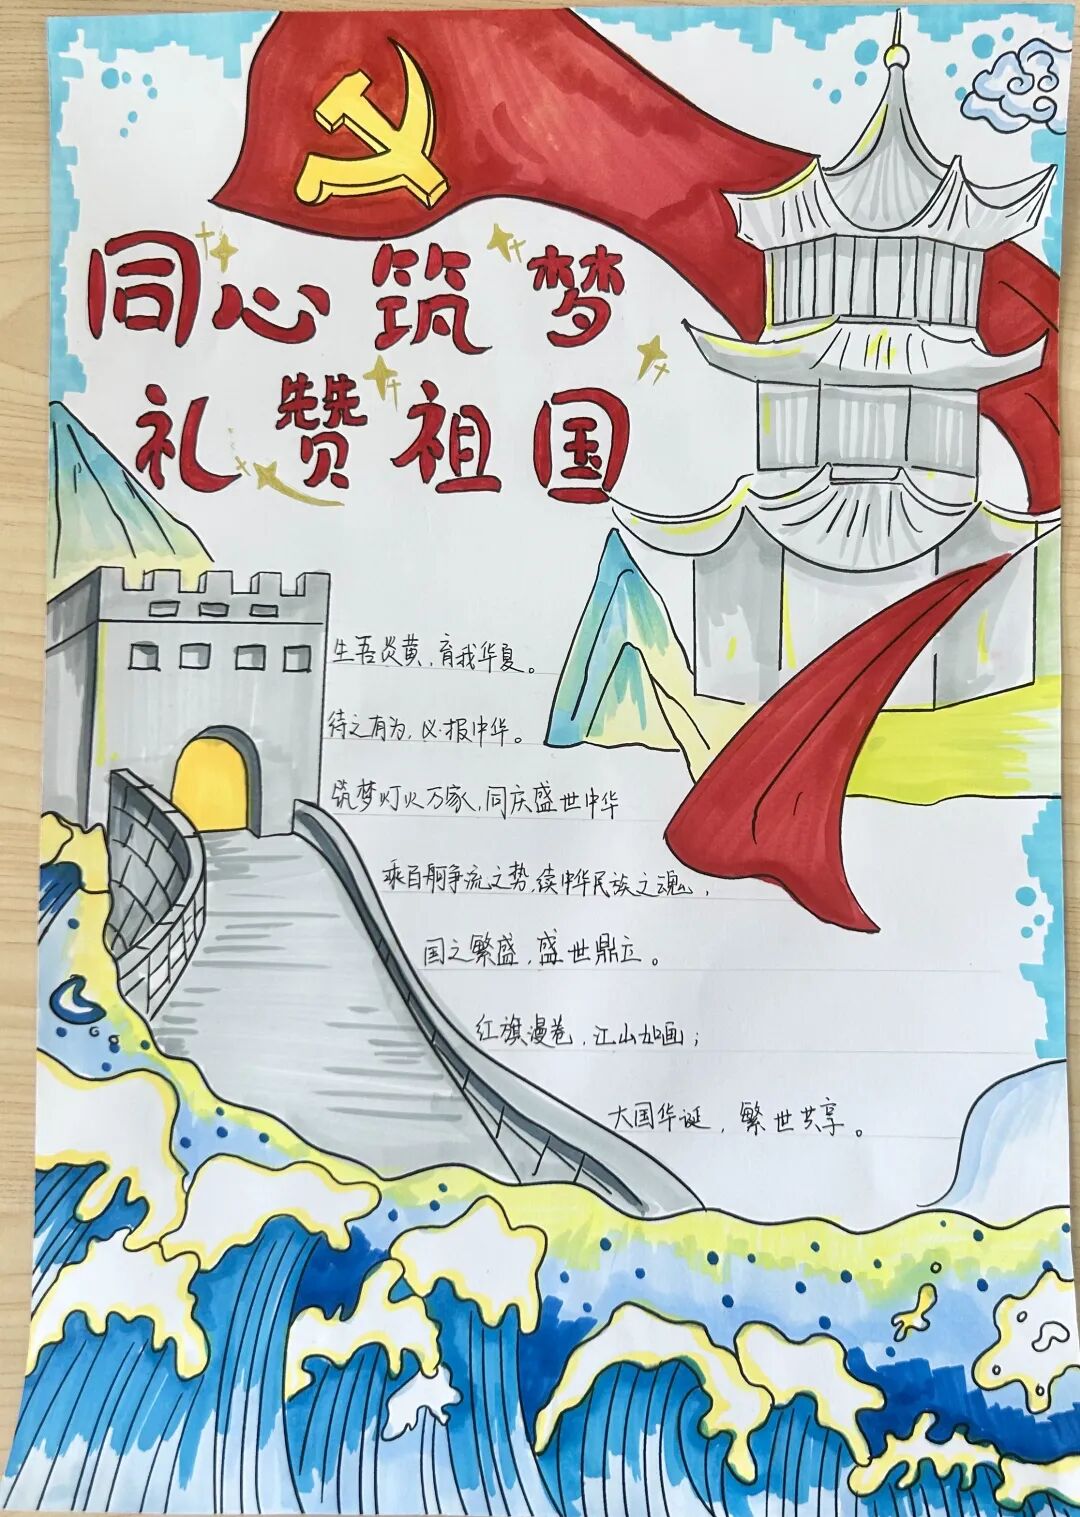 同心筑梦
礼赞祖国
生吾炎黄,育我华夏。
待之有为,必报中华。
筑梦灯火万家,同庆盛世中华
乘百舸争流之势,续中华民族之魂,
国之繁盛,盛世鼎立。
红旗漫卷,江山如画;
大国华诞,繁世共享。